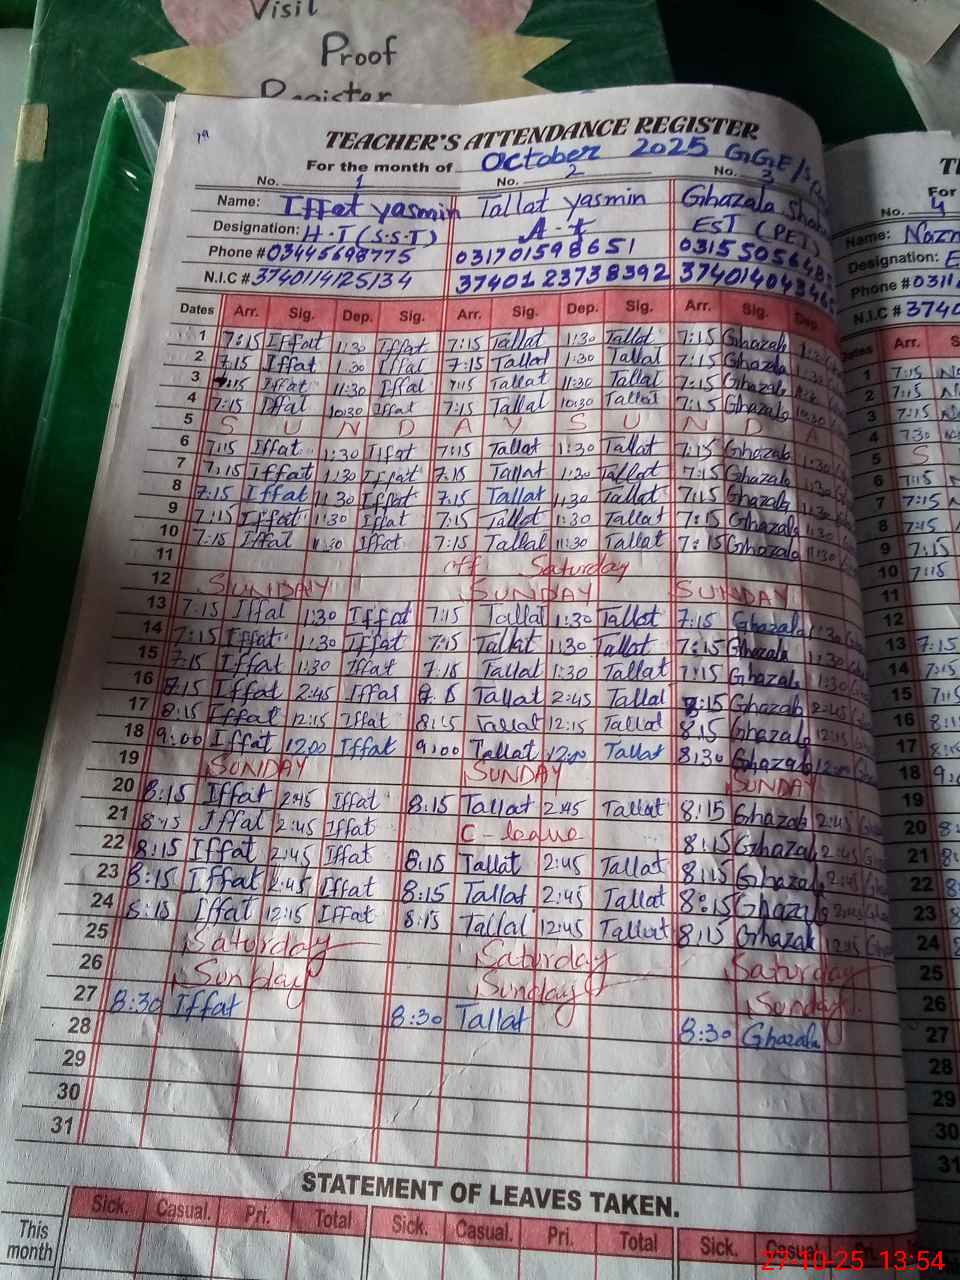 Visit
Proof
Register
19
TEACHER'S ATTENDANCE REGISTER
For the month of October 2025 GGE/S
No. 1 No. 2 No. 3
Name: Iffat yasmin Tallat yasmin Ghazala
Designation: H.T (S.S.T) A.t EST (PET)
Phone # 03445698775 031701598651
N.I.C # 3740114125134 3740123738392
Dates Arr. Sig. Dep. Sig. Arr. Sig. Dep. Sig. Arr. Sig. Dep.
1 7:15 Iffat 1:30 Iffat 7:15 Tallat 1:30 Tallat 7:15 Ghazala
2 7:15 Iffat 1:30 Iffat 7:15 Tallat 1:30 Tallat 7:15 Ghazala
3 7:15 Iffat 11:30 Iffat 7:15 Tallat 11:30 Tallat 7:15 Ghazala
4 7:15 Iffat 10:30 Iffat 7:15 Tallat 10:30 Tallat 7:15 Ghazala
5 S U N D A Y S U N D A
6 7:15 Iffat 1:30 Iffat 7:15 Tallat 1:30 Tallat 7:15 Ghazala
7 7:15 Iffat 1:30 Iffat 7:15 Tallat 1:30 Tallat 7:15 Ghazala
8 7:15 Iffat 1:30 Iffat 7:15 Tallat 1:30 Tallat 7:15 Ghazala
9 7:15 Iffat 1:30 Iffat 7:15 Tallat 1:30 Tallat 7:15 Ghazala
10 7:15 Iffat 11:30 Iffat 7:15 Tallat 11:30 Tallat 7:15 Ghazala
11 off Saturday
12 SUNDAY SUNDAY SUNDAY
13 7:15 Iffat 1:30 Iffat 7:15 Tallat 1:30 Tallat 7:15 Ghazala 1:30
14 7:15 Iffat 1:30 Iffat 7:15 Tallat 1:30 Tallat 7:15 Ghazala 1:30
15 7:15 Iffat 1:30 Iffat 7:15 Tallat 1:30 Tallat 7:15 Ghazala 1:30
16 8:15 Iffat 2:45 Iffat 8:15 Tallat 2:45 Tallat 8:15 Ghazala 2:45
17 8:15 Iffat 12:15 Iffat 8:15 Tallat 12:15 Tallat 8:15 Ghazala 12:15
18 9:00 Iffat 12:00 Iffat 9:00 Tallat 12:00 Tallat 8:30 Ghazala 12:00
19 SUNDAY SUNDAY SUNDAY
20 8:15 Iffat 2:45 Iffat 8:15 Tallat 2:45 Tallat 8:15 Ghazala 2:45
21 8:15 Iffat 2:45 Iffat C-leave 8:15 Ghazala 2:45
22 8:15 Iffat 2:45 Iffat 8:15 Tallat 2:45 Tallat 8:15 Ghazala 2:45
23 8:15 Iffat 2:45 Iffat 8:15 Tallat 2:45 Tallat 8:15 Ghazala 2:45
24 8:15 Iffat 12:15 Iffat 8:15 Tallat 12:45 Tallat 8:15 Ghazala 12:45
25 Saturday Saturday Saturday
26 Sunday Sunday Sunday
27 8:30 Iffat 8:30 Tallat 8:30 Ghazala
28
29
30
31
STATEMENT OF LEAVES TAKEN.
Sick. Casual. Pri. Total Sick. Casual. Pri. Total Sick. Casual. Pri.
This month
No. 4
Name:
Designation:
Phone #
N.I.C #
Dates Arr.
1 7:15
2 7:15
3 7:15
4 7:30
5 S
6 7:15
7 7:15
8 7:15
9 7:15
10 7:15
11
12
13 7:15
14 7:15
15 7:15
16
17
18
19
20
21
22
23
24
25
26
27
28
29
30
31
27-10-25 13:54